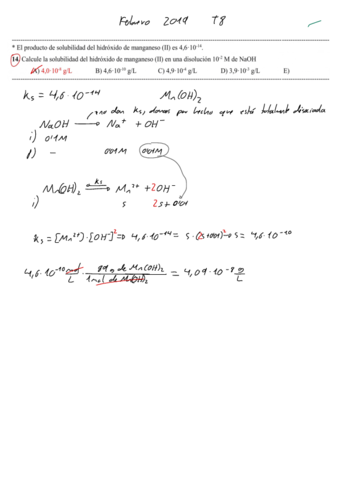 Febrero 2019 T8
* El producto de solubilidad del hidróxido de manganeso (II) es 4,6·10⁻¹⁴.
14. Calcule la solubilidad del hidróxido de manganeso (II) en una disolución 10⁻² M de NaOH
A) 4,0·10⁻⁸ g/L B) 4,6·10⁻¹⁰ g/L C) 4,9·10⁻⁴ g/L D) 3,9·10⁻³ g/L E)
Ks = 4,6·10⁻¹⁴ Mn(OH)₂
no dan Ks, damos por hecho que está totalmente disociada
NaOH → Na⁺ + OH⁻
i) 0'01M
f) — 0'01M 0'01M
Mn(OH)₂ ⇌ Ks Mn²⁺ + 2OH⁻
i) s 2s+0'01
Ks = [Mn²⁺]·[OH⁻]² ⇒ 4,6·10⁻¹⁴ = s·(s+0'01)² ⇒ s = 4,6·10⁻¹⁰
4,6·10⁻¹⁰ mol/L · 89 g de Mn(OH)₂ / 1 mol de Mn(OH)₂ = 4,09·10⁻⁸ g/L